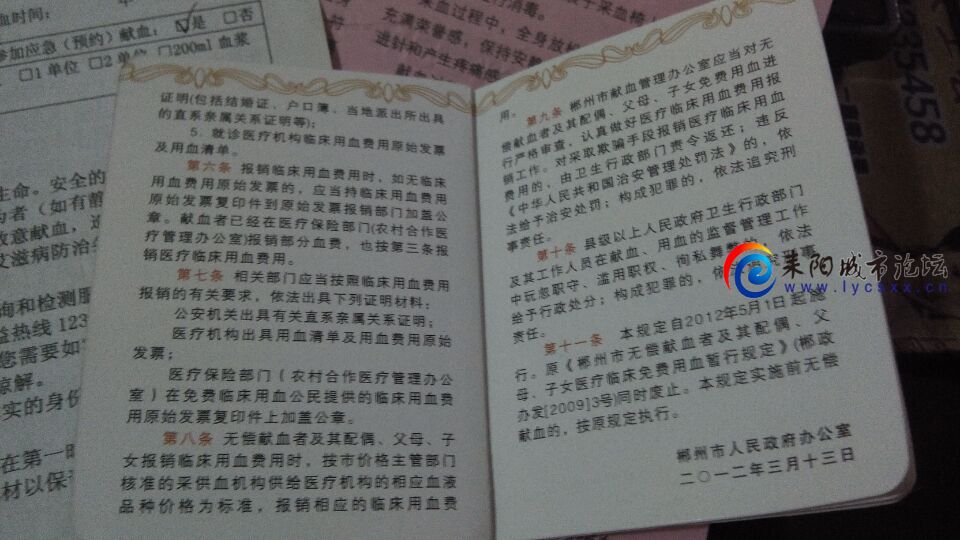 血时间：
参加应急（预约）献血：☑是 □否
□1单位 □2单位 □200ml 血浆
生命。安全的
为者（如有
故意献血，
艾滋病防治
询和检测服
益热线123
您需要如
谅解。
实的身份
在第一时
材以保
采血过程中，全身放松
充满荣誉感，保持安静
进针和产生疼痛感
证明(包括结婚证、户口簿、当地派出所出具
的直系亲属关系证明等)；
5．就诊医疗机构临床用血费用原始发票
及用血清单。
第六条 报销临床用血费用时，如无临床
用血费用原始发票的，应当持临床用血费用
原始发票复印件到原始发票报销部门加盖公
章。献血者已经在医疗保险部门(农村合作医
疗管理办公室)报销部分血费，也按第三条报
销医疗临床用血费用。
第七条 相关部门应当按照临床用血费用
报销的有关要求，依法出具下列证明材料：
公安机关出具有关直系亲属关系证明；
医疗机构出具用血清单及用血费用原始
发票；
医疗保险部门（农村合作医疗管理办公
室）在免费临床用血公民提供的临床用血费
用原始发票复印件上加盖公章。
第八条 无偿献血者及其配偶、父母、子
女报销临床用血费用时，按市价格主管部门
核准的采供血机构供给医疗机构的相应血液
品种价格为标准，报销相应的临床用血费
用。
第九条 郴州市献血管理办公室应当对无
偿献血者及其配偶、父母、子女免费用血进
行严格审查，认真做好医疗临床用血费用报
销工作。对采取欺骗手段报销医疗临床用血
费用的，由卫生行政部门责令返还；违反
《中华人民共和国治安管理处罚法》的，依
法给予治安处罚；构成犯罪的，依法追究刑
事责任。
第十条 县级以上人民政府卫生行政部门
及其工作人员在献血、用血的监督管理工作
中玩忽职守、滥用职权、徇私舞弊的，依法
给予行政处分；构成犯罪的，依法追究刑事
责任。
第十一条 本规定自2012年5月1日起施
行。原《郴州市无偿献血者及其配偶、父
母、子女医疗临床免费用血暂行规定》(郴政
办发[2009]3号)同时废止。本规定实施前无偿
献血的，按原规定执行。
郴州市人民政府办公室
二〇一二年三月十三日
耒阳城市论坛
www.lycsxx.cn
35458